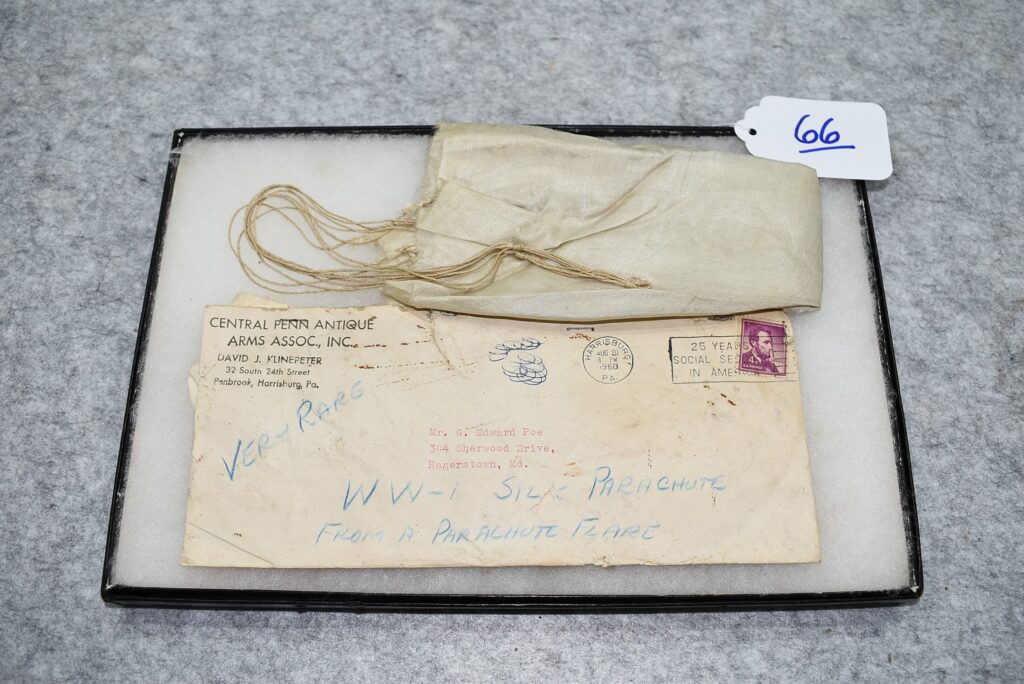 66
CENTRAL PENN ANTIQUE
ARMS ASSOC., INC.
DAVID J. KLINEPETER
32 South 24th Street
Penbrook, Harrisburg, Pa.
HARRISBURG
AUG 20
6 PM
1960
PA.
25 YEARS
SOCIAL SEC
IN AMER
4¢
VERY RARE
Mr. G. Edward Poe
344 Sherwood Drive,
Hagerstown, Md.
WW-1 SILK PARACHUTE
FROM A PARACHUTE FLARE